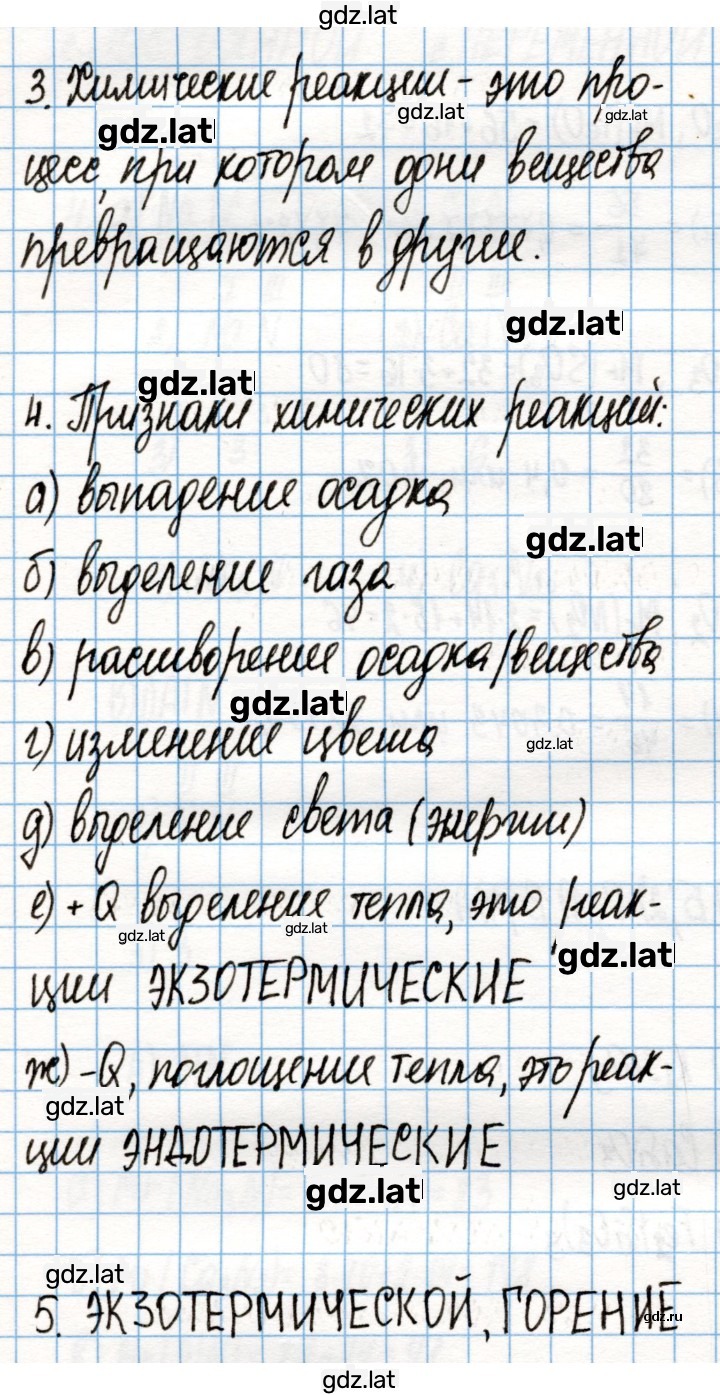 gdz.lat
3. Химические реакции - это про-
gdz.lat gdz.lat gdz.lat
цесс, при котором дони вещества
превращаются в другие.
gdz.lat
gdz.lat
4. Признаки химических реакций:
а) выпадение осадка
gdz.lat
б) выделение газа
в) растворение осадка/вещества
gdz.lat
г) изменение цвета
gdz.lat
д) выделение света (энергии)
е) + Q выделение тепла, это реак-
gdz.lat gdz.lat gdz.lat
ции ЭКЗОТЕРМИЧЕСКИЕ
ж) -Q, поглощение тепла, это реак-
gdz.lat
ции ЭНДОТЕРМИЧЕСКИЕ
gdz.lat gdz.lat
gdz.lat
5. ЭКЗОТЕРМИЧЕСКОЙ, ГОРЕНИЕ
gdz.ru
gdz.lat